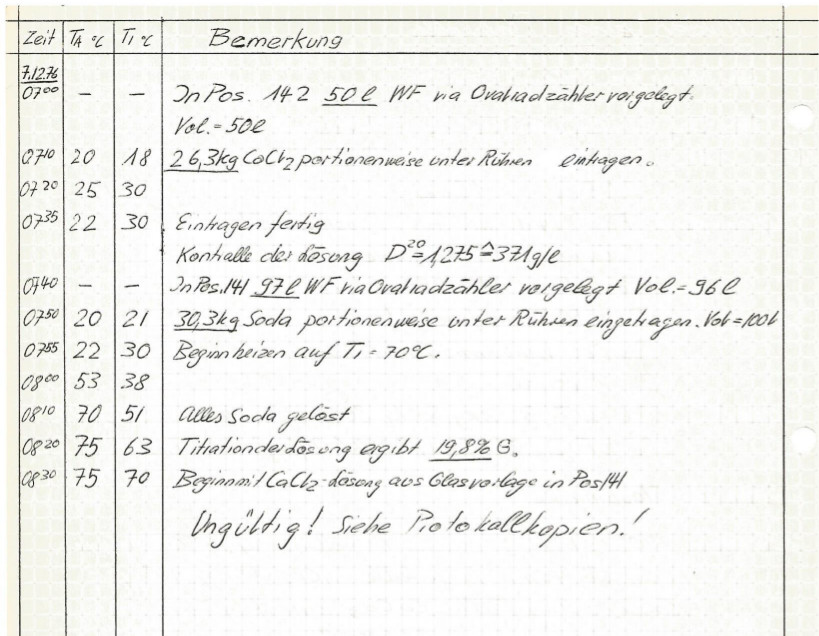 Zeit TA °C Ti °C Bemerkung
7.12.76
07⁰⁰ – – In Pos. 142 50 l WF via Ovalradzähler vorgelegt.
Vol. = 50 l
07¹⁰ 20 18 26,3 kg CaCl₂ portionenweise unter Rühren eintragen.
07²⁰ 25 30
07³⁵ 22 30 Eintragen fertig
Kontrolle der Lösung D²⁰ = 1,275 ≙ 371 g/l
07⁴⁰ – – In Pos. 141 97 l WF via Ovalradzähler vorgelegt Vol. = 96 l
07⁵⁰ 20 21 30,3 kg Soda portionenweise unter Rühren eingetragen. Vol = 100 l
07⁵⁵ 22 30 Beginn heizen auf Ti = 70 °C.
08⁰⁰ 53 38
08¹⁰ 70 51 Alles Soda gelöst
08²⁰ 75 63 Titration der Lösung ergibt 19,8% G.
08³⁰ 75 70 Beginn mit CaCl₂-Lösung aus Glasvorlage in Pos 141
Ungültig! Siehe Protokollkopien!